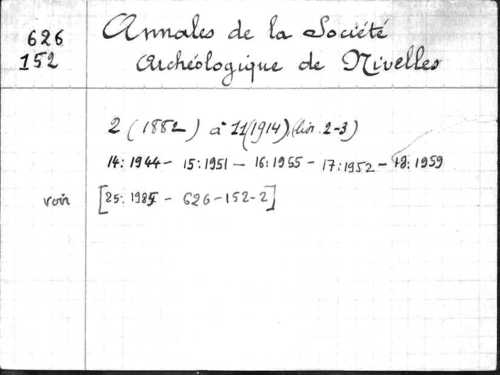 626 Annales de la Société
152 Archéologique de Nivelles
2 (1882) à 11(1914) (liv. 2-3)
14:1944 - 15:1951 - 16:1955 - 17:1952 - 18:1959
voir [25: 1985 - 626-152-2]